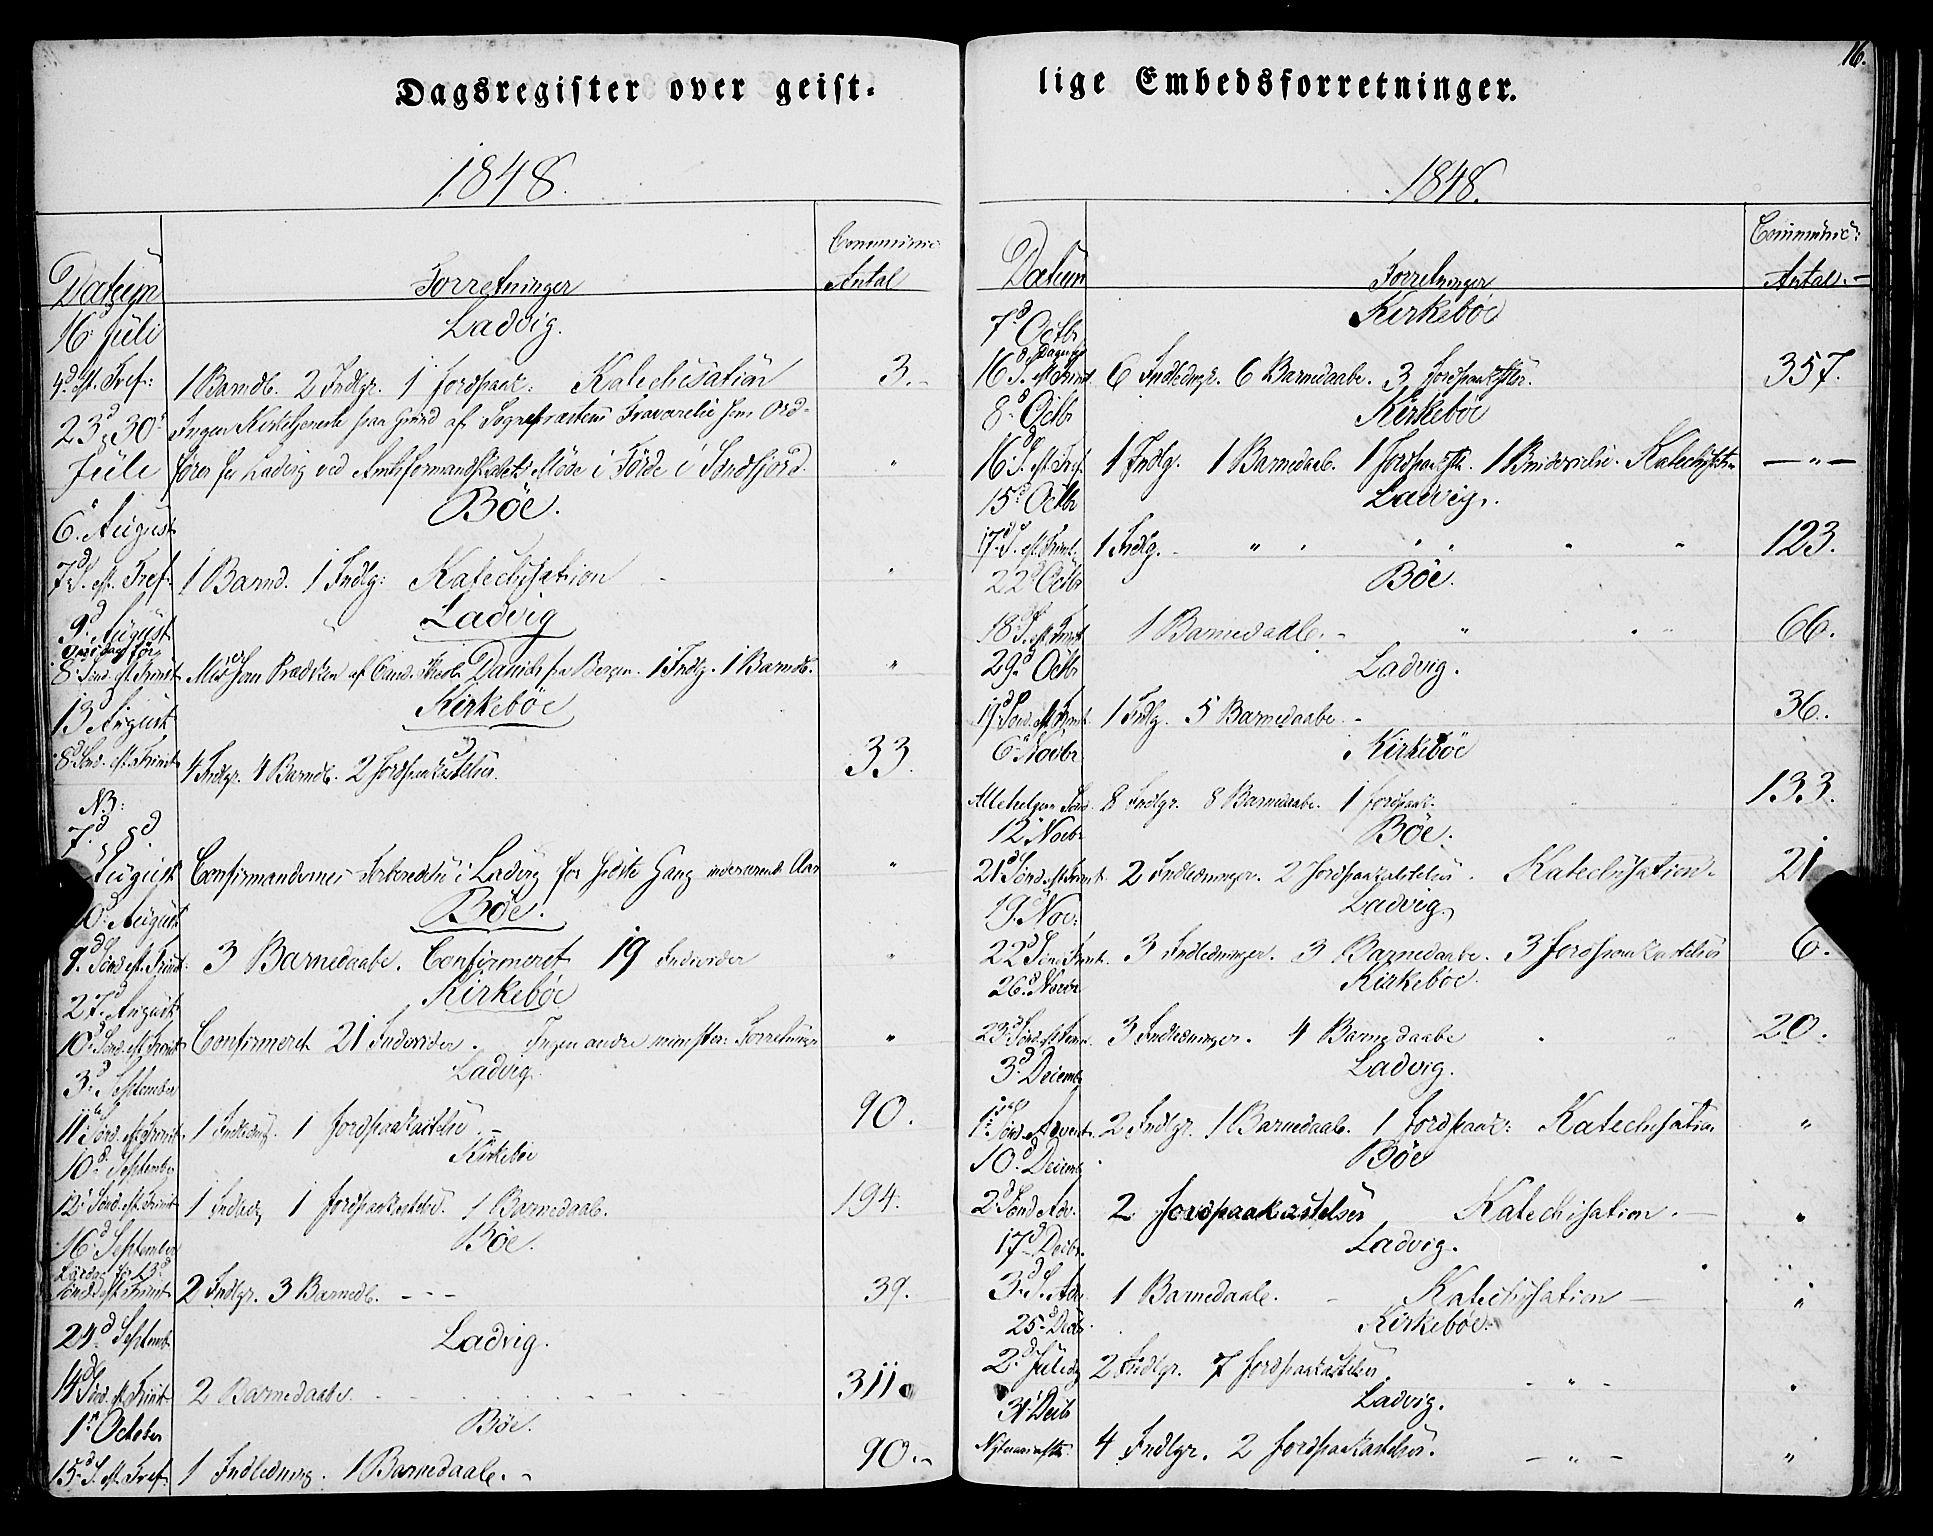 Dagsregister over geist-
1848.
Datum
Forretninger
Communic:
Antal
16 Juli
Ladvig.
4d. eft. Tref: 1 Barndb. 2 Indlgr. 1 Jordpaak: Katechisation 3.-
23d, 30d Ingen Kirketjeneste paa Grund af Sognepræstens Fraværelse som Ord-
Juli fører for Ladvig ved Amtsformandskabets Møde i Förde i Söndfjord. "
6. August
Böe.
7d. S. eft. Tref. 1 Barnd. 1 Indlg: Katechisation - "
9d. August
Ladvig
8 Sönd. eft. Trinit. af Cand. Theol. Daniels fra Bergen. 1 Indlg. 1 Barndb. "
13 August
Kirkeböe
8d. Sönd. eft. Trinit. 4 Indlgr. 4 Barndb. 2 Jordpaakastelser. 33.
NB:
7d, 8d.
August Confirmandernes i Ladvig for sidste Gang Aar "
August
Böe.
9d. Sönd. eft. Trinit. 3 Barnedaabe. Confirmeret 19 Individer "
27. August
Kirkeböe
10d. Sönd. eft. Trinit. Confirmeret 21 Individer. Ingen andre minister: Forretninger "
3d. September
Ladvig.
11 Sönd. eft. Trinit. 1 Indledng. 1 Jordpaakastelse - 90.
10d. September
Kirkeböe
12 Sönd. eft. Trinit. 1 Indledg 1 Jordpaakastelse. 1 Barnedaab. 194.
16d. September
Böe.
Lørdag før 13d
Sönd. eft. Trinit. 2 Indlgr. 3 Barndb. - - - 39.
24d. Septemb.
Ladvig.
14d. Sönd. eft. Trinit. 2 Barnedaabe. 311
1st October
Böe.
15d. S. eft. Tref. 1 Indledning. 1 Barnedaab. - 90.-
16.
lige Embedsforretninger.
1848.
Datum
Forretninger
Communic:
Antal.
7d. Octbr
Kirkeböe
Dagen før
16d. S. eft. Trinit. 6 Indledngr. 6 Barnedaabe. 3 Jordpaakstlser. 357.
8. Octbr
Kirkeböe
16d. S. eft. Tref. 1 Indlg. 1 Barnedaab. 1 Jordpaakstls. 1 Brudevielse. Katechisation - " -
15d Octbr
Ladvig.
17d. S. eft. Trinit. 1 Indlg. - " " " " 123.
22d Octbr
Böe.
18d. S. eft. Trinit. 1 Barnedaab. - " " " 66.
29d. Octbr
Ladvig.
19d. Sönd. eft. Trinit. 1 Indlg. 5 Barnedaabe. - 36.
6. Novbr.
Kirkeböe
Allehelgen Sönd. 8 Indlgr. 8 Barnedaabe. 1 Jordpaak. 133.
12 Novbr
Böe.
21d Sönd. eft. Trinit. 2 Indledninger. 2 Jordpaakastelser. Katechisation. 21
19. Nov:
Ladvig.
22d Sönd. Trinit. 3 Indledninger. 3 Barnedaabe. 3 Jordpaakastelser 6.
26d. Novbr
Kirkeböe.
23d Sönd. eft. Trinit. 3 Indledninger. 4 Barnedaabe 20.
3d. Decemb
Ladvig.
1ste Sönd. Advent. 2 Indlgr. 1 Barnedaab. 1 Jordpaak: Katechisation "
10d. Decemb
Böe
2d. Sönd Adv. 2 Jordpaakastelser Katechisation. - "
17d Decbr.
Ladvig.
3d. S. Adv. 1 Barnedaab. - Katechisation - "
25d. Decbr.
Kirkeböe.
2d. Juledg 2 Indlgr. 7 Jordpaakastelser. - " - "
31. Decb
Ladvig.
Nytaarsaften. 4 Indlgr. 2 Jordpaakastelser. - " - "